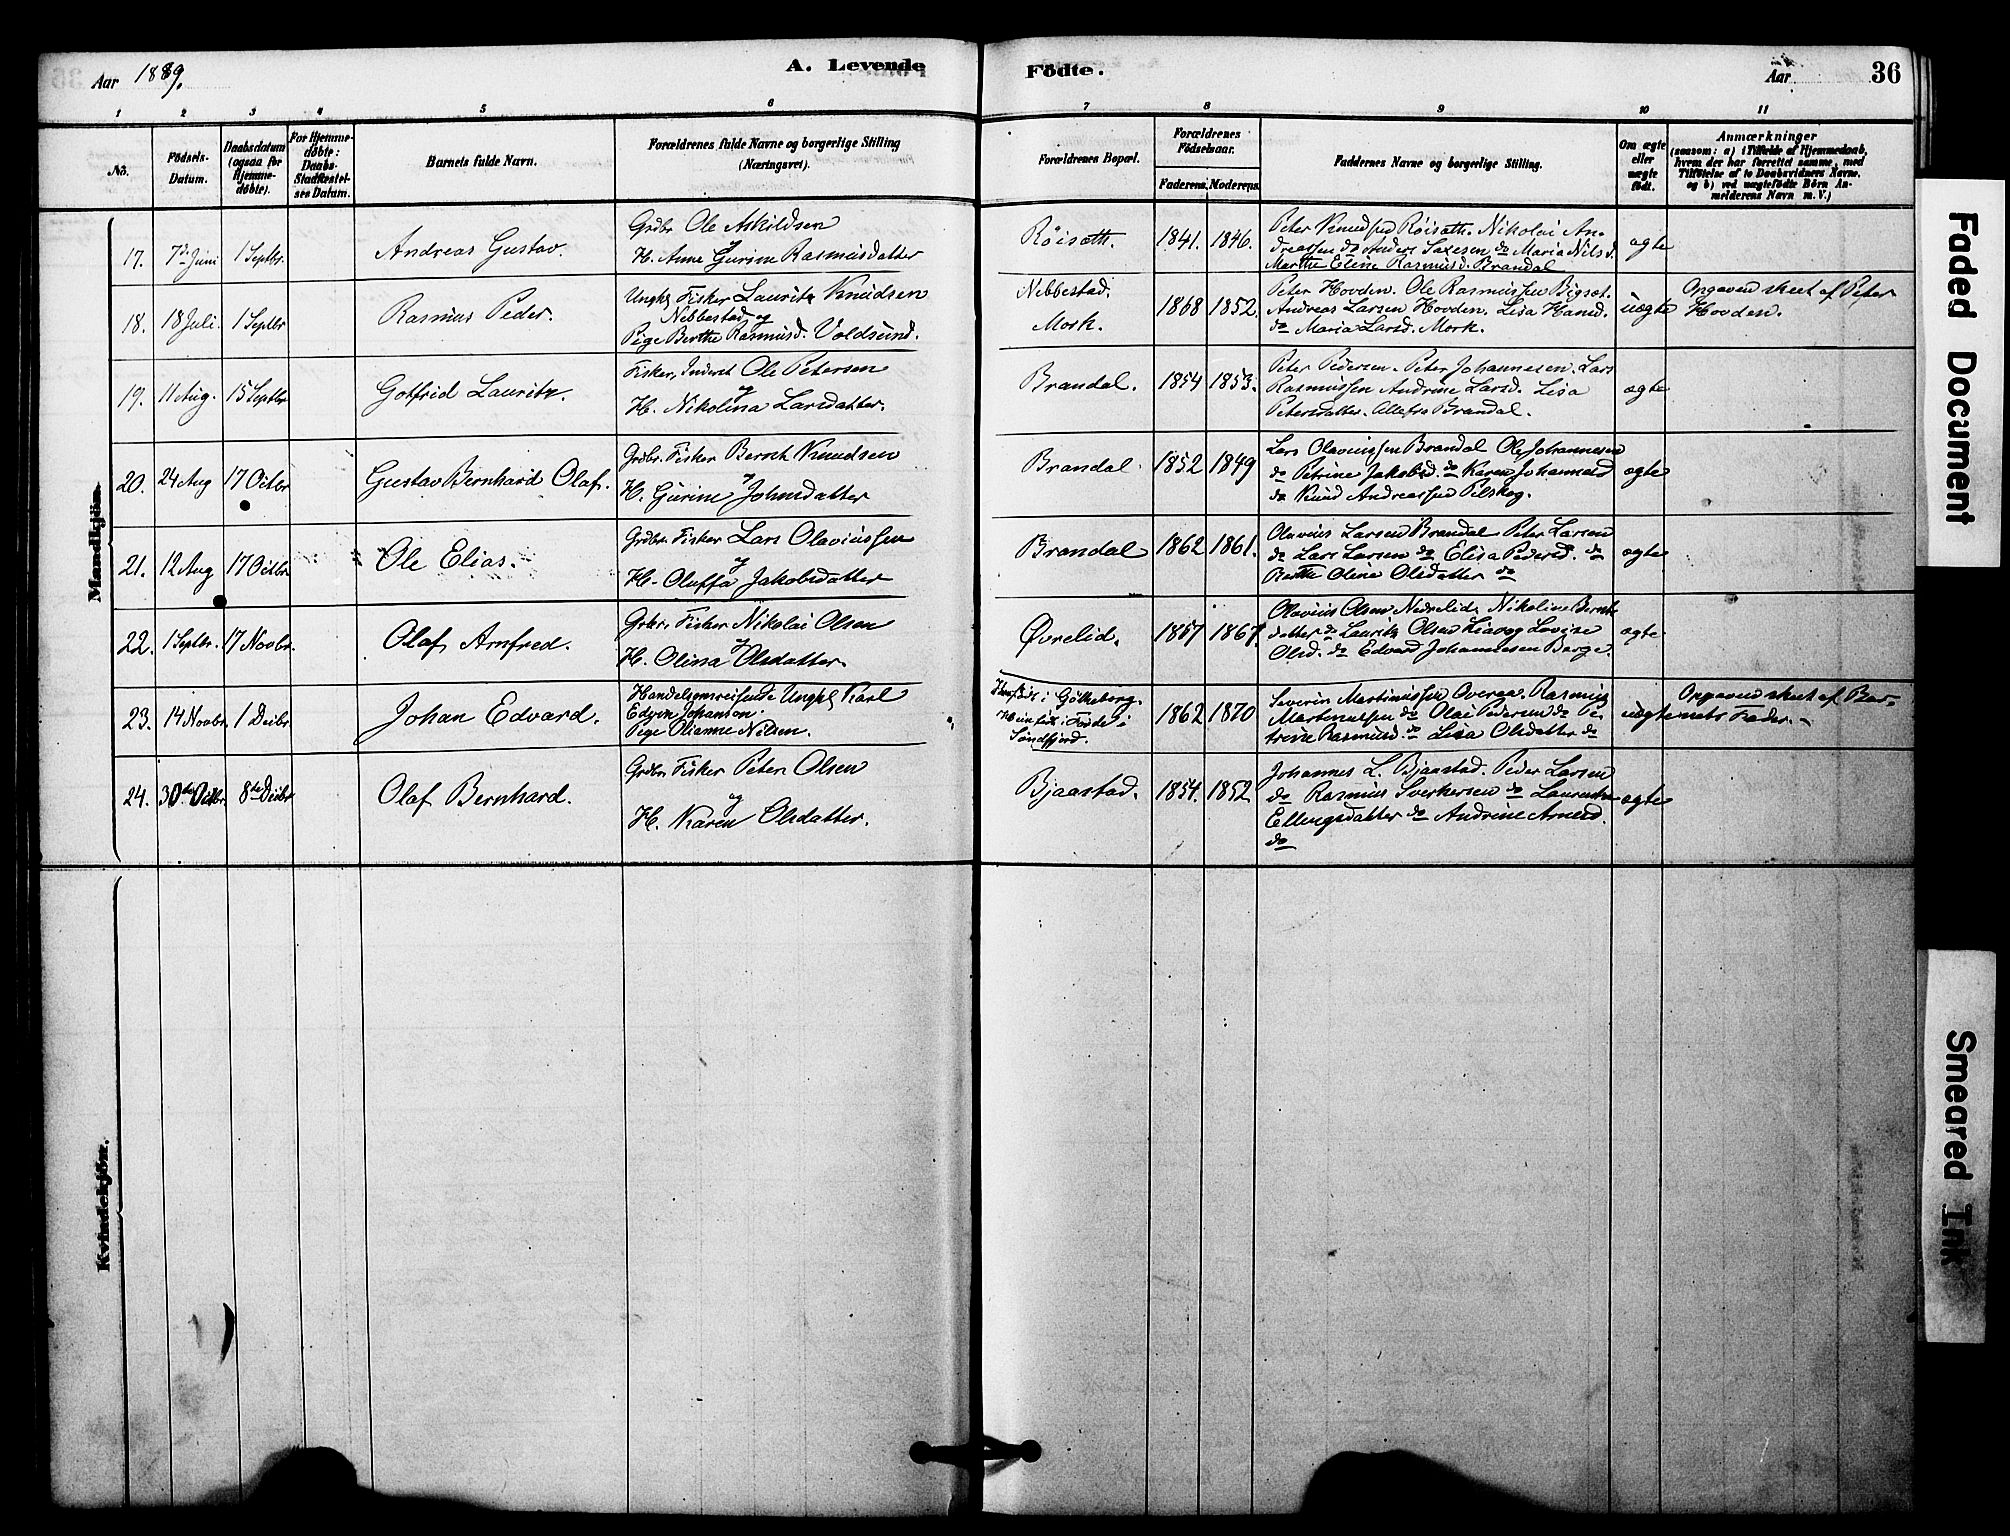 Aar 1889.
A. Levende
Födte.
Aar
36
1 2 3 4 5 6 7 8 9 10 11
No.
Födsels-
Datum.
Daabsdatum
(ogsaa for
Hjemme-
döbte).
For Hjemme-
döbte:
Daabs-
Stadfæstel-
ses Datum.
Barnets fulde Navn.
Forældrenes fulde Navne og borgerlige Stilling
(Næringsvei).
Forældrenes Bopæl.
Forældrenes
Födselsaar.
Faderens. Moderens.
Faddernes Navne og borgerlige Stilling.
Om ægte
eller
uægte
födt.
Anmærkninger
(saasom: a) i Tilfælde af Hjemmedaab,
hvem der har forrettet samme, med
Tilföielse af to Daabsvidners Navne,
og b) ved uægtefödte Börn An-
melderens Navn m. V.)
Mandkjön.
17. 7de Juni 1 Septbr. Andreas Gustav.
Grdbr. Ole Askildsen
og
H. Anne Gurine Rasmusdatter
Röisæth. 1841. 1846.
Peter Knudsen Röisæth. Nikolai An-
dreassen do Anders Saxesen do Maria Nilsd.
Marthe Eline Rasmusd. Brandal
ægte
18. 18 Juli. 1 Septbr Rasmus Peder.
Ungk. Fisker Lauritz Knudsen
Nebbestad og
Pige Berthe Rasmusd. Voldsund.
Nebbestad.
Mork.
1868 1852.
Peter Hovden. Ole Rasmussen Bigset.
Andreas Larsen Hovden. Lisa Hansd.
do Maria Larsd. Mork.
uægte
Opgaven skeet af Peter
Hovden.
19. 11 Aug. 15 Septbr Gotfrid Lauritz.
Fisker, Inderst Ole Petersen
og
H. Nikolina Larsdatter.
Brandal. 1854 1853.
Peter Pedersen. Peter Johannesen. Lars
Rasmussen Andrine Larsd. Lisa
Petersdatter. Alle fra Brandal.
ægte
20. 24 Aug 17 Octbr Gustav Bernhard Olaf.
Grdbr. Fisker Bernt Knudsen
og
H. Gurine Johnsdatter
Brandal. 1852 1849
Lars Olaviussen Brandal Ole Johannesen
do Petrine Jakobsd. do Karen Johannesd
do Knud Andreassen Pilskog.
ægte
21. 12 Aug 17 Octbr Ole Elias.
Grdbr. Fisker Lars Olaviussen
og
H. Oluffa Jakobsdatter
Brandal 1862 1861.
Olavius Larsen Brandal Peter Larsen
do Lars Larsen do Elisa Pedersd. do
Berthe Oline Olsdatter do
ægte
22. 1 Septbr. 17 Novbr. Olaf Arnfred.
Grbr. Fisker Nikolai Olsen
og
H. Olina Olsdatter.
Øvrelid. 1857 1867.
Olavius Olsen Nedrelid. Nikoline Bernts
datter do Lauritz Olsen Liavog Lovise
Olsd. do Edvard Johannesen Berge.
ægte
23. 14 Novbr. 1 Decbr. Johan Edvard.
Handelsomreisende Ungk. Karl
Edvin Johanson.
Pige Olianne Nilsen.
i Götheborg.
i Förde i
Söndfjord.
1862 1870
Severin Martinussen Overaa. Rasmus
Martinussen do Olai Pedersen do Pe-
trine Rasmusd. do Lisa Olsdatter do
uægte
Opgaven skeet af Bar-
nets Fader.
24. 30te Octbr. 8de Decbr Olaf Bernhard.
Grdbr Fisker Peter Olsen
og
H. Karen Olsdatter.
Bjaastad. 1854. 1852
Johannes L. Bjaastad. Peder Larsen
do Rasmus Sverkersen do Laurentse
Ellingsdatter do Andrine Arnesd.
do
ægte
Kvindekjön.
Faded Document
Smeared Ink